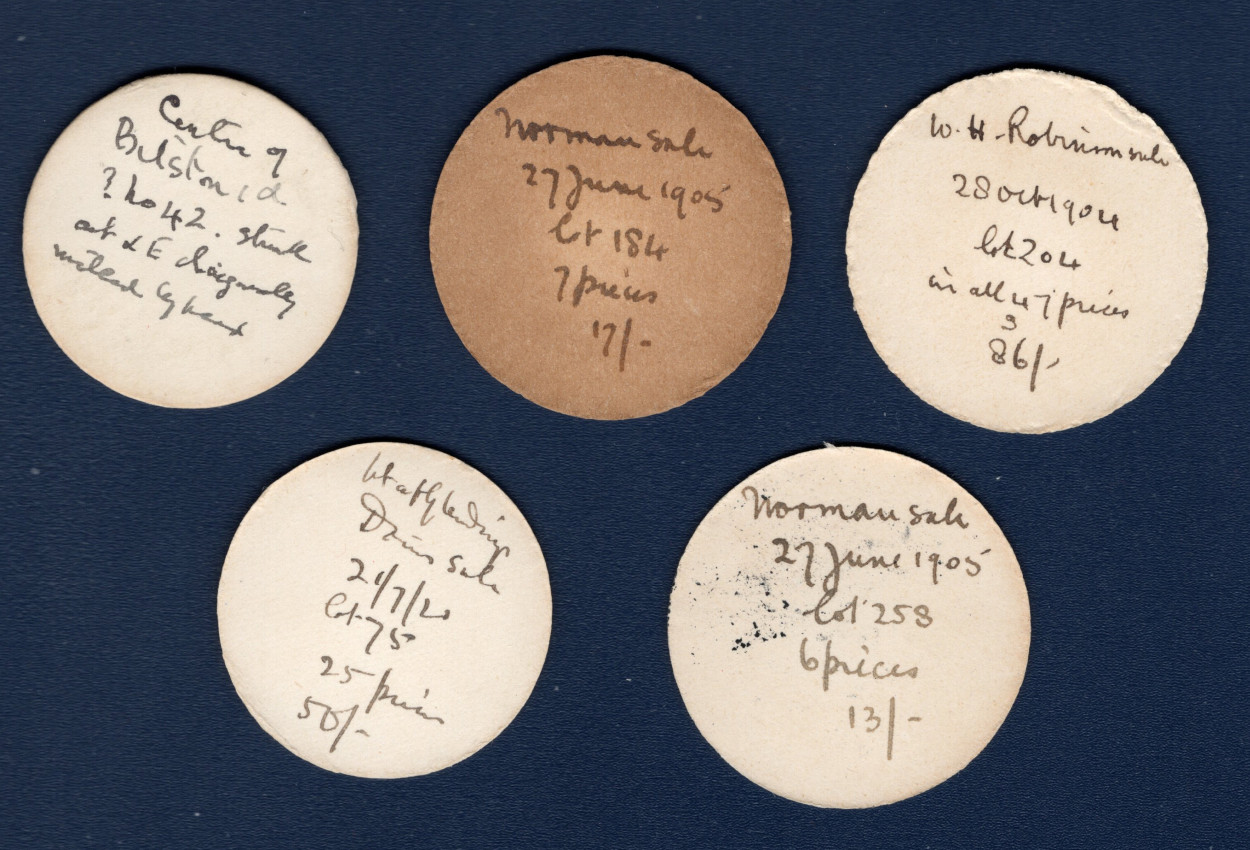 Centre of
Bilston 1d
? No 42. struck
out & E diagonally
milled by hand
Norman sale
27 June 1905
lot 184
7 pieces
17/-
W. H. Robinson sale
28 Oct 1904
lot 204
in all 47 pieces
86/-
Davis sale
21/7/20
lot 75
25 pieces
50/-
Norman sale
27 June 1905
lot 258
6 pieces
13/-